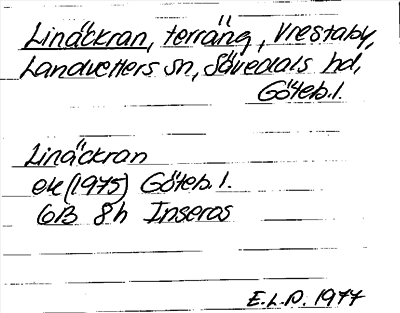 Linäckran, terräng, Vrestaby,
Landvetters sn, Sävedals hd,
Göteb.l.
Linäckran
ek (1975) Göteb.l.
6B 8h Inseros
E.L.P. 1977